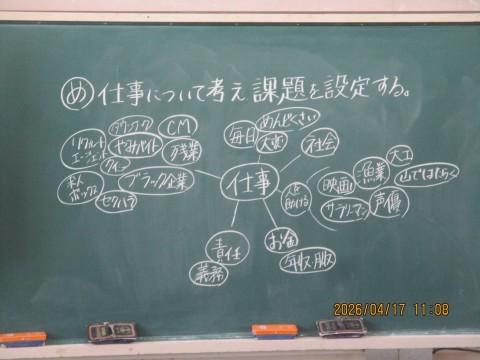 め 仕事について考え課題を設定する。
タウンワーク
CM
リクルート
エージェント
やみバイト
残業
タイミー
ブラック企業
求人
ボックス
セクハラ
毎日
めんどくさい
大変
社会
仕事
人を
助ける
映画
漁業
大工
山ではたらく
サラリーマン
声優
責任
義務
お金
年収・月収
2026/04/17 11:08